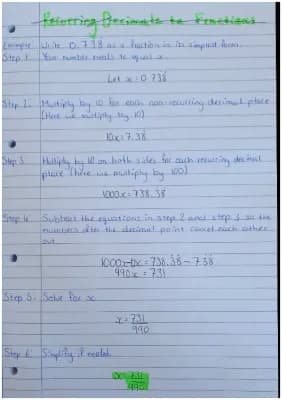 Recurring Decimals to Fractions
Example: Write 0.738 as a fraction in its simplest form.
Step 1: Your number needs to equal x
Let x = 0.738
Step 2: Multiply by 10 for each non-recurring decimal place
(Here we multiply by 10)
10x = 7.38
Step 3: Multiply by 10 on both sides for each recurring decimal
place (here we multiply by 100)
1000x = 738.38
Step 4: Subtract the equations in step 2 and step 3 so the
numbers after the decimal point cancel each other
out
1000x - 10x = 738.38 - 7.38
990x = 731
Step 5: Solve for x
x = 731
990
Step 6: Simplify if needed
731
990